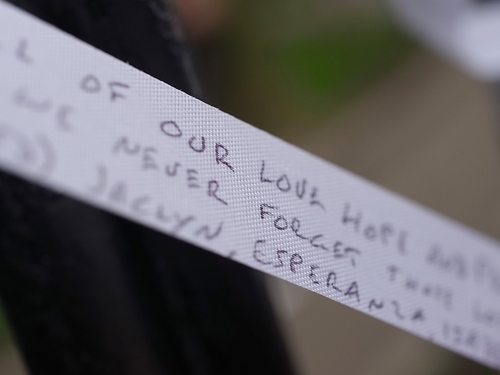 OF OUR LOVE HOPE
WE NEVER FORGET THOSE
JACLYN, ESPERANZA,